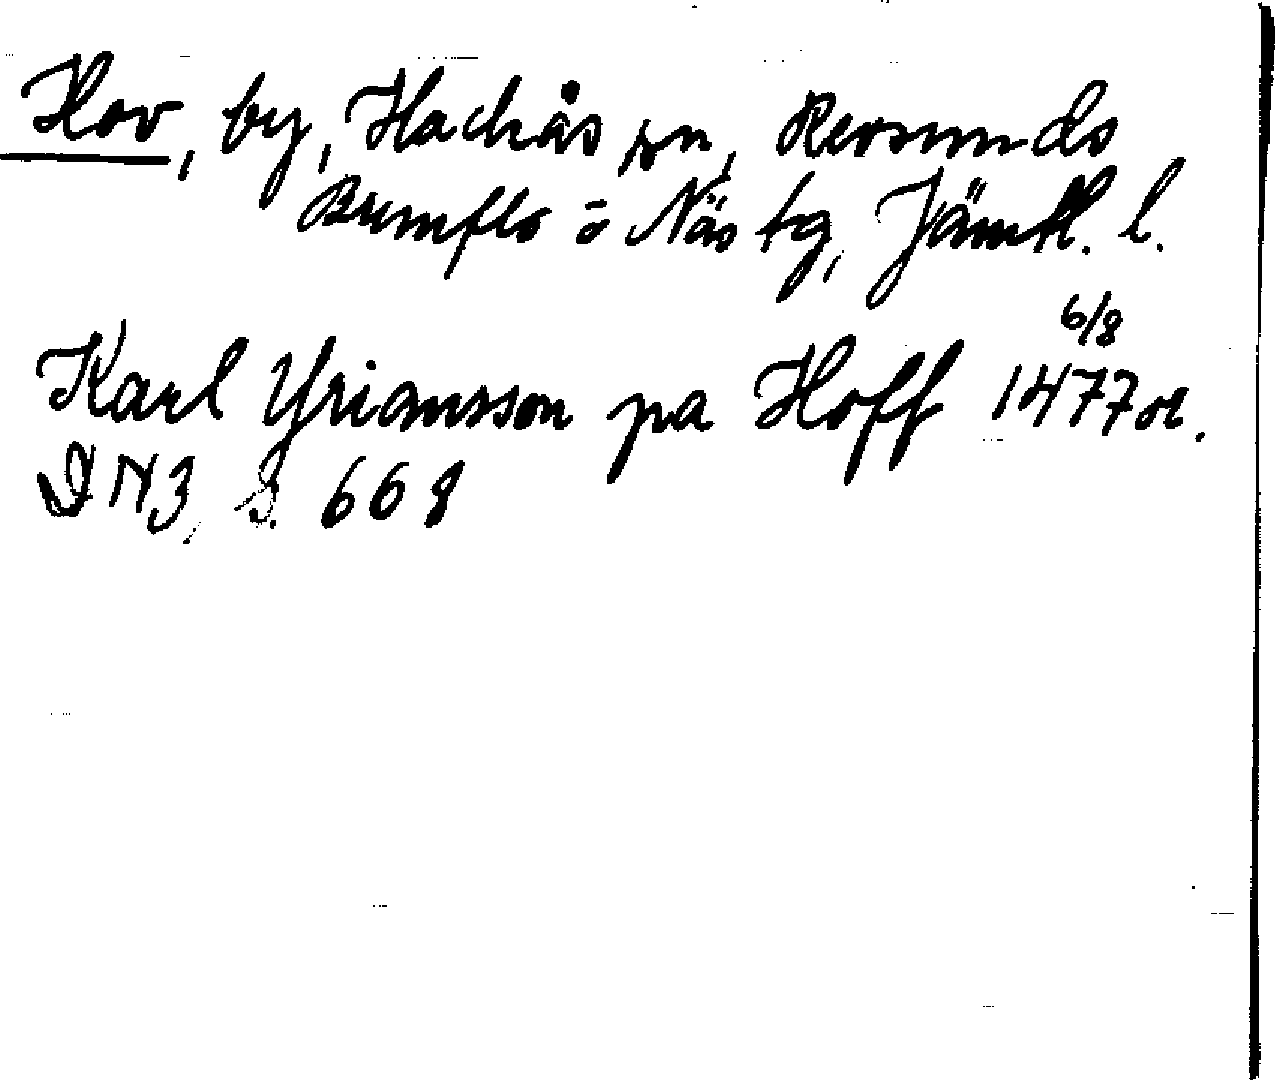 Hov, by, Hackås sn, Revsunds
Brunflo o Näs tg, Jämtl. l.
Karl Yrianssson pa Hoff 6/8 1477 or.
DN 3, S. 668